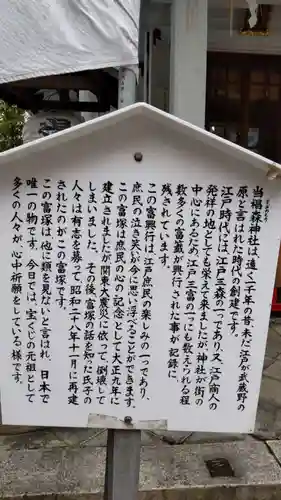 すぎのもり
当椙森神社は遠く一千年の昔未だ江戸が武蔵野の
原と言はれた時代の創建です。
江戸時代には、江戸三森の一つであり又、江戸商人の
発祥の地としても栄えて来ましたが、神社が街の
中心にあるため、江戸三富の一つにも数えられる程
数多くの富籤が興行された事が記録に
残されています。
この富興行は江戸庶民の楽しみの一つであり、
庶民の泣き笑いが今に思い浮べることができます。
この富塚は庶民の心の記念として大正九年に
建立されましたが関東大震災に依って、倒壊して
しまいました。その後、富塚の話を知った氏子の
人々は有志を募って、昭和二十八年十一月に再建
されたのがこの富塚です。
この富塚は、他に類を見ないと言はれ、日本で
唯一の物です。今日では、宝くじの元祖として
多くの人々が、心中祈願をしている様です。